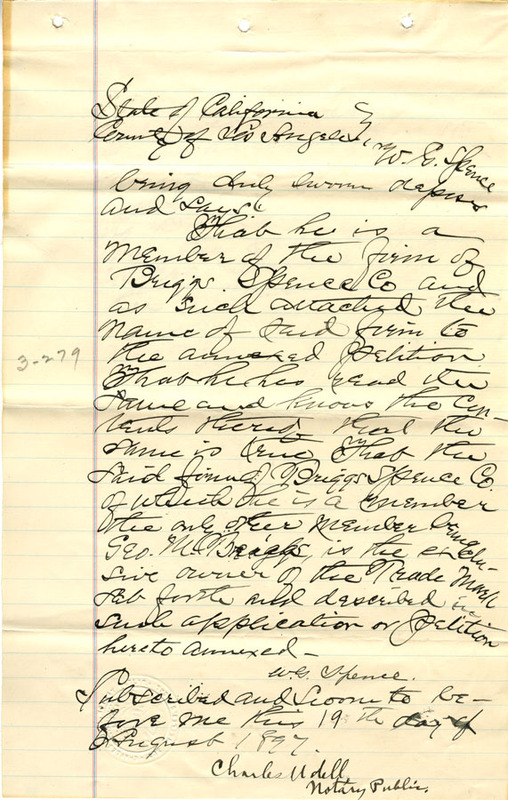 State of California }
County of Los Angeles }
W. G. Spence
being duly sworn deposes
and says:
That he is a
Member of the firm of
Briggs Spence Co and
as such attached the
name of said firm to
the annexed petition.
3-279
That he has read the
same and knows the con-
tents thereof that the
same is true That the
said firm of Briggs Spence Co
of which he is a member
the only other member being
Geo. M. Briggs, is the exclu-
sive owner of the Trade Mark
set forth and described in
such application or petition
hereto annexed -
W. G. Spence.
Subscribed and Sworn to be-
fore me this 19th day of
August 1897.
Charles Udell,
Notary Public.